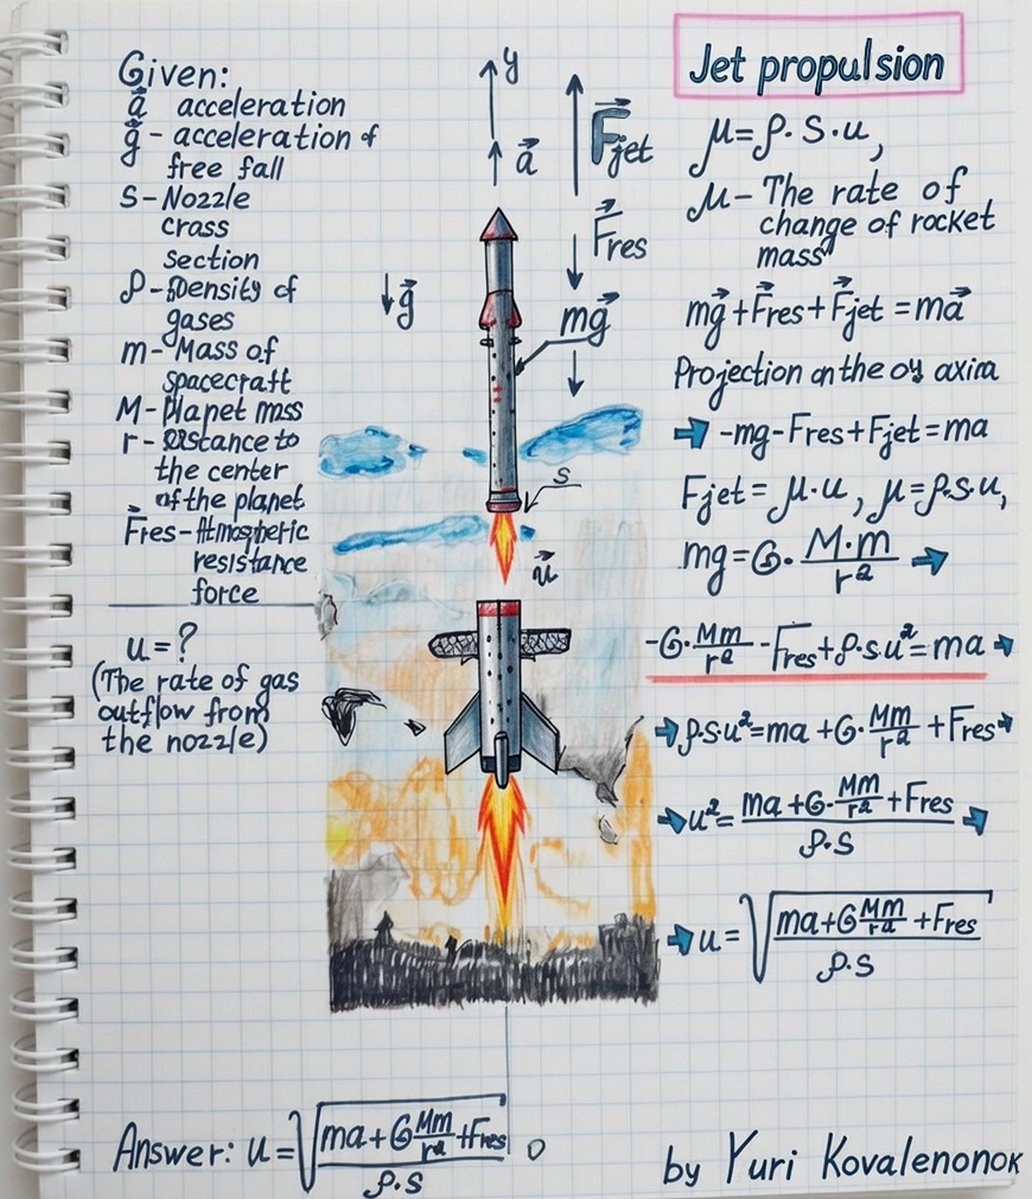 Given:
a⃗ acceleration
g⃗ - acceleration of
free fall
S - Nozzle
crass
section
ρ - Density of
gases
m - Mass of
spacecraft
M - Planet mass
r - distance to
the center
of the planet
F⃗res - Atmospheric
resistance
force
u = ?
(The rate of gas
outflow from
the nozzle)
y
a⃗
F⃗jet
F⃗res
g⃗
mg⃗
S
u⃗
Jet propulsion
μ = ρ · S · u,
μ - The rate of
change of rocket
mass
mg⃗ + F⃗res + F⃗jet = ma⃗
Projection on the oy axim
➔ -mg - Fres + Fjet = ma
Fjet = μ · u, μ = ρ·s·u,
mg = G · M·m/r² ➔
-G · Mm/r² - Fres + ρ·s·u² = ma ➔
➔ ρ·s·u² = ma + G · Mm/r² + Fres ➔
➔ u² = (ma + G · Mm/r² + Fres)/(ρ·S) ➔
➔ u = √((ma + G Mm/r² + Fres)/(ρ·S))
Answer: u = √((ma + G Mm/r² + Fres)/(ρ·S))
by Yuri Kovalenonok